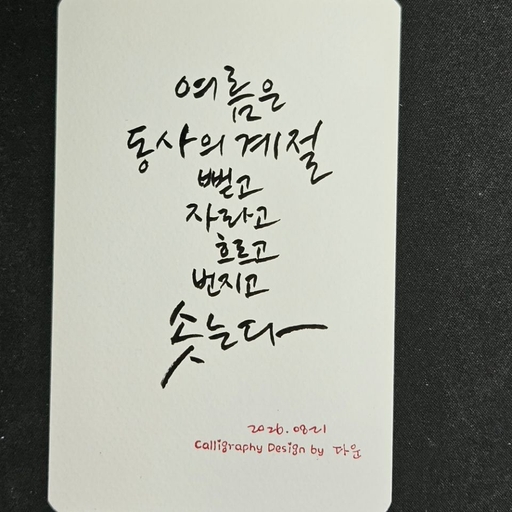 여름은
동사의 계절
뻗고
자라고
흐르고
번지고
솟는다
2026.08.21
Calligraphy Design by 다운